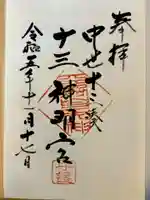 奉拝
中世十三湊
十三神明宮
令和五年十一月十七日